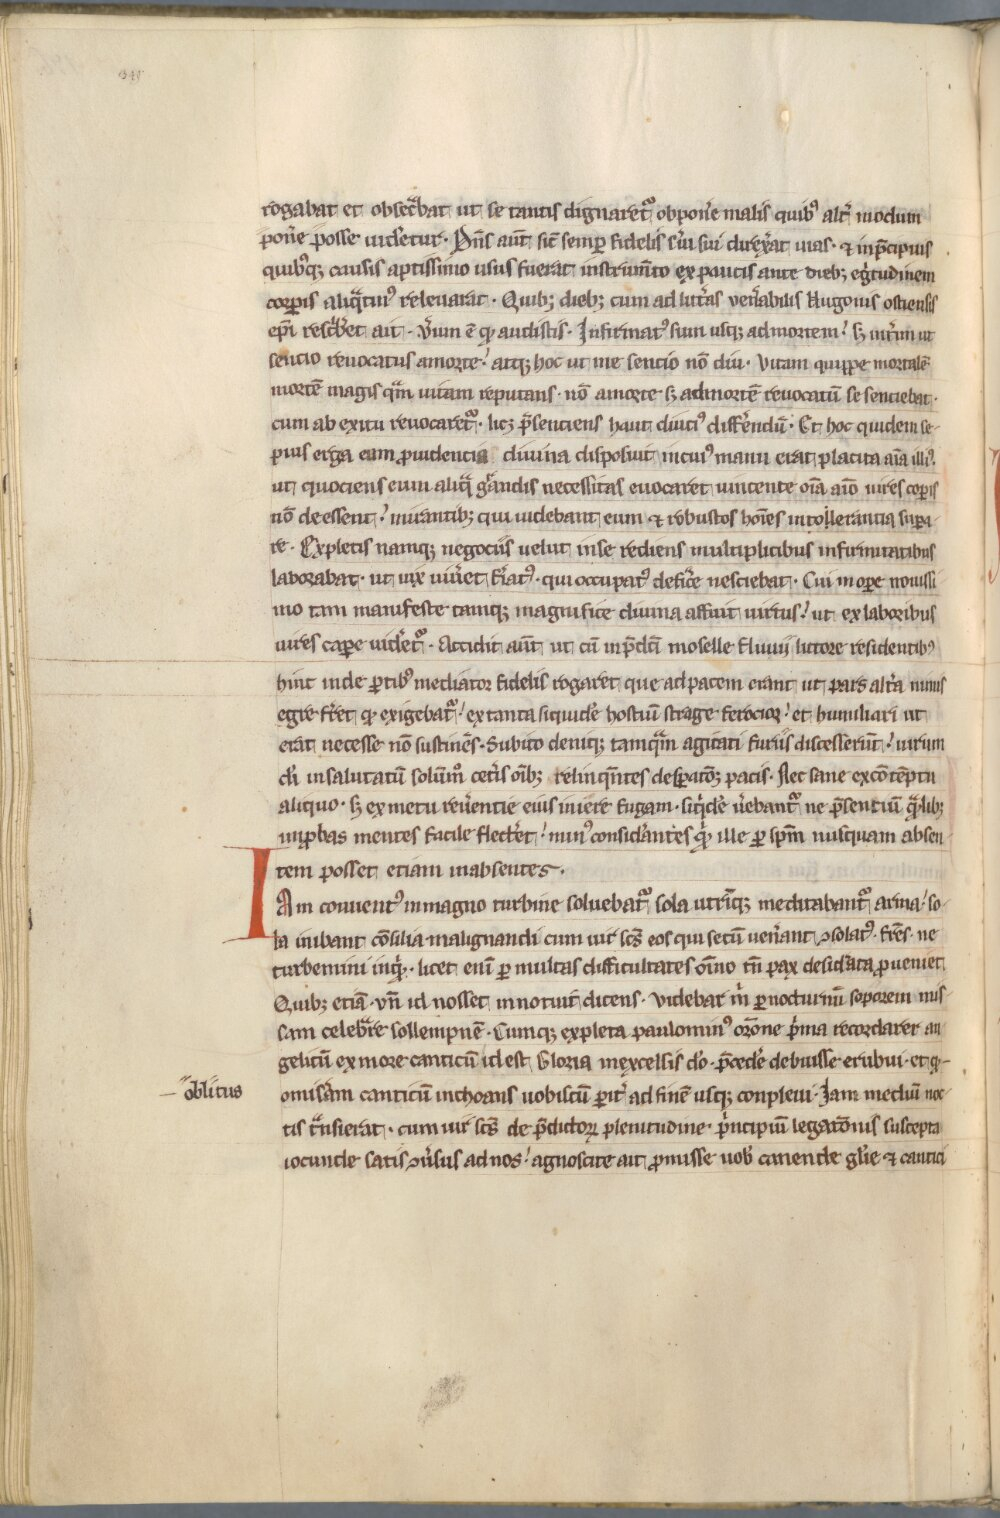 340
rogabat et obsec̃bat ut se tantis dignaret᷑ obpoñe malis quibꝰ alt̃ modum
poñe posse uidetur· Dñs aut̃ sic̃ semꝑ fidelis s̃ui sui direx̃at uias· ⁊ in p̃cipuis
quibꝰqꝫ causis aptissimo usus fuerat instrum̃to ex paucis ante diebꝫ eg̃tudinem
corꝑis aliq̃tinꝰ releuarat· Quibꝫ diebꝫ cum ad litt̃as ven̄abilis Hugonis ostiensis
ep̃i resc̃beret ait· Ṽum ē qđ audistis· Infirmatꝰ sum usqꝫ ad mortem· sꝫ int̃im ut
sentio reuocatus a morte· atqꝫ hoc ut me sentio nō diu· Vitam quippe mortalē
mortē magis q̃m uitam reputans· nō a morte sꝫ ad mortē reuocatū se sentiebat·
cum ab exitu reuocaret᷑· licꝫ p̃sentiens haut diutiꝰ differendū· Et hoc quidem se-
pius erga eum ꝓuidentia diuina disposuit in cuiꝰ manu erat placita aīa illiꝰ·
ut quociens eum aliq̃ g̃ndis necessitas euocaret uincente oīa aīo uires corꝑis
nō deessent· mirantibꝫ qui uidebant eum ⁊ robustos hoīes in tollerantia suꝑa-
re· Expletis namqꝫ negociis uelut in se rediens multiplicibus infirmitatibus
laborabat· ut uix uiũet feriatꝰ· qui occupatꝰ defic̃e nesciebat· Cui in oꝑe nouissi-
mo tam manifeste tamqꝫ magnifice diuina affuit uirtus· ut ex laboribus
uires caꝑe uidet᷑· Accidit aut̃ ut cū in p̃dc̃i moselle fluuij littore residentibꝰ
hinc inde ꝑtibꝰ mediator fidelis rogaret que ad pacem erant ut pars alt̃a nimis
egre ferret qđ exigebat᷑· ex tanta siquidē hostiū strage ferocior· et humiliari ut
erat necesse nō sustinēs· Subito deniqꝫ tamq̃m agitati furiis discesserūt· uirum
dī insalutatū solūm̃ cet̃is oībꝫ relinq̃ntes desꝑatōꝫ pacis· Nec sane ex cōtēptu
aliquo· sꝫ ex metu reũentie eius iniere fugam· siq̃dē ũebant᷑ ne p̃sentium q̃libꝫ
inꝓbas mentes facile flect̃et· minꝰ considãntes qđ ille ꝑ sp̃m nusquam absen-
tem posset etiam in absentes·
IAm conuentꝰ in magno turbine soluebat᷑ sola utriqꝫ meditabant᷑ arma· so-
la inibant cōsilia malignandi cum uir scs̃ eos qui secū veñant ꝯsolatꝰ· frēs· ne
turbemini inq̃d· licet enī ꝑ multas difficultates oīno tn̄ pax desid̃ata ꝓueniet
Quibꝫ etiā vn̄ id nosset innotuit dicens· videbar m̃ ꝑ nocturnū soporem mis-
sam celeb̃re sollempnē· Cumqꝫ expleta paulominꝰ orōne p̃ma recordarer an-
gelicū ex more canticū id est Gloria in excelsis dō· p̃cedē debuisse erubui· et qđ
omis̃am canticū inchoans uobiscū ꝑit̃ ad finē usqꝫ conpleui· Iam mediū noc-
tis t̃nsierat· cum uir scs̃ de p̃dictoꝝ plenitudine· p̃ncipiū legatōnis suscepta
iocunde satis ꝯũsus ad nos· agnoscite ait ꝓmisse uob̃ canende gl̃ie ⁊ cantici
oblitus